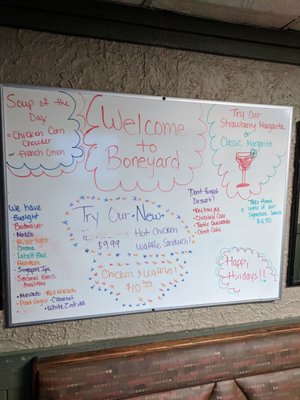 Soup of the
Day
- Chicken Corn
Chowder
- French Onion
Welcome
to
Boneyard
Try Our
Strawberry Margarita
or
Classic Margarita
Take Home
one of our
Signature
$6.50
We have
Budlight
Budweiser
Miller
Miller light
Corona
Labatt Blue
Heineken
Seasonal Beers
Available
- Moscato
- Pinot Grigio
- Cabernet
- White Zinfandel
Try Our New
Hot Chicken
$9.99
Waffle Sandwich!
Chicken & Waffles!
$10.99
Don't forget
Dessert!
- Key lime pie
- Chocolate Cake
- Carrot Cake
Happy
Holidays!!